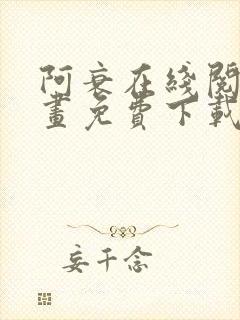 阿衰在线阅
画免费下载
妄千念